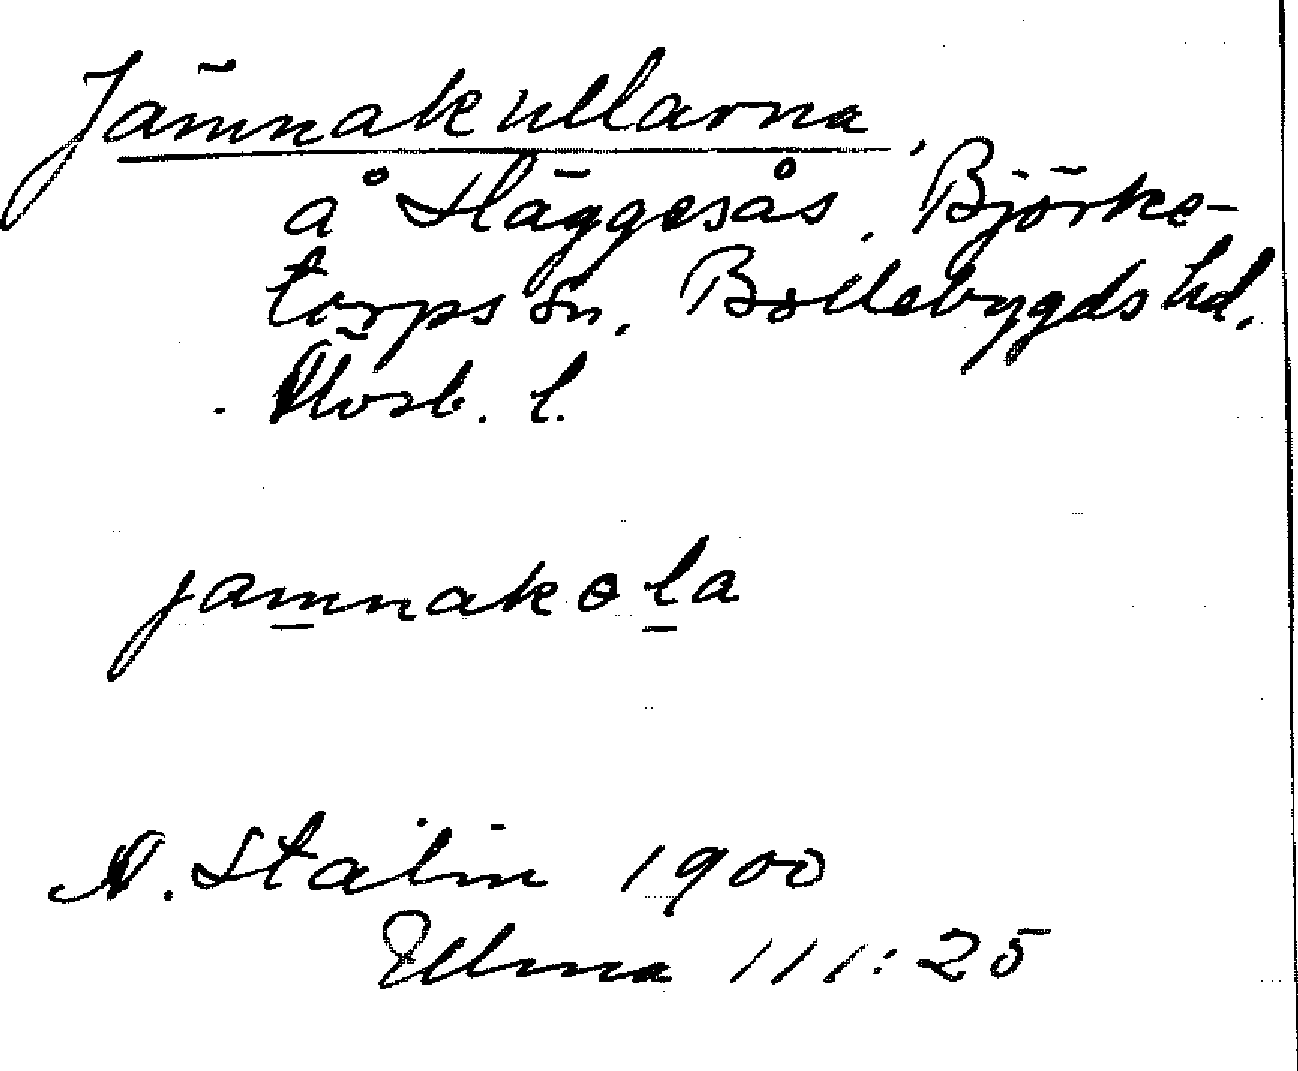 Jämnakullarna,
å Häggesås, Björke-
torps sn, Bollebygds hd,
Älvsb. l.
jamnakola
A. Stalin 1900
Ulma 111:25